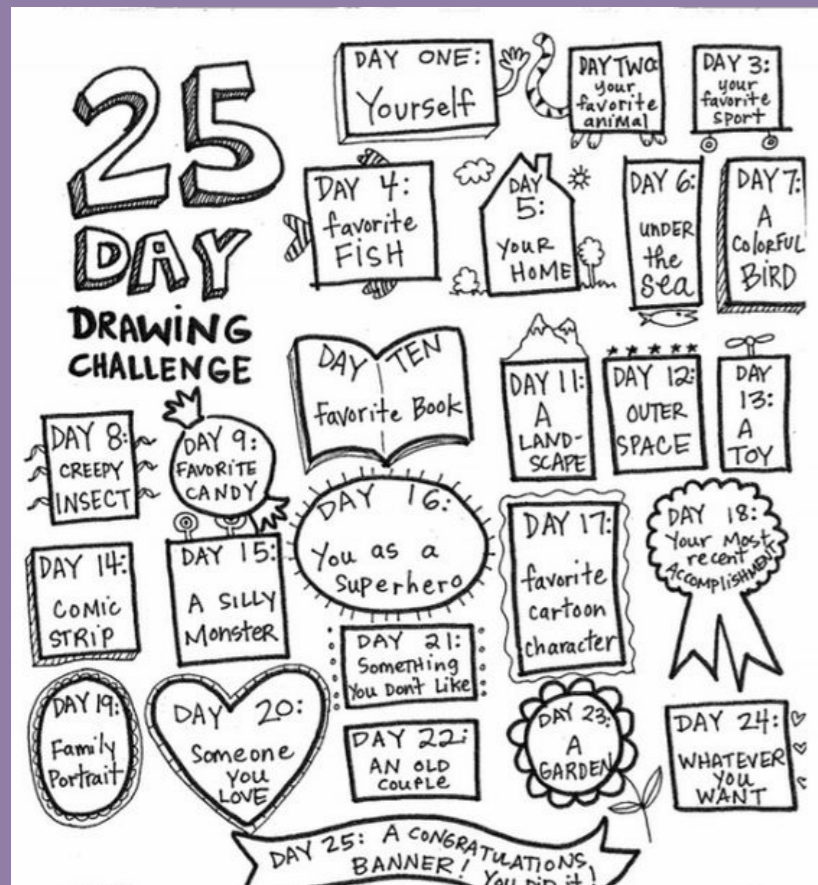 25
DAY
DRAWiNG
CHALLENGE
DAY ONE:
Yourself
DAY TWO:
your
favorite
animal
DAY 3:
your
favorite
SPORT
DAY 4:
favorite
FiSH
DAY
5:
YOUR
HOME
DAY 6:
UNDER
the
Sea
DAY 7:
A
COLORFUL
BiRD
DAY 8:
CREEPY
INSECT
DAY 9:
FAVORITE
CANDY
DAY TEN
Favorite Book
DAY 11:
A
LAND-
SCAPE
DAY 12:
OUTER
SPACE
DAY
13:
A
TOY
DAY 14:
COMIC
STRiP
DAY 15:
A SiLLY
Monster
DAY 16:
You as a
Superhero
DAY 17:
favorite
cartoon
character
DAY 18:
Your Most
recent
ACCOMPLISHMENT
DAY 19:
Family
Portrait
DAY 20:
Someone
YOU
LOVE
DAY 21:
Something
You Dont Like
DAY 22:
AN OLD
COUPLE
DAY 23:
A
GARDEN
DAY 24:
WHATEVER
YOU
WANT
DAY 25: A CONGRATULATIONS
BANNER! YOU DID it!